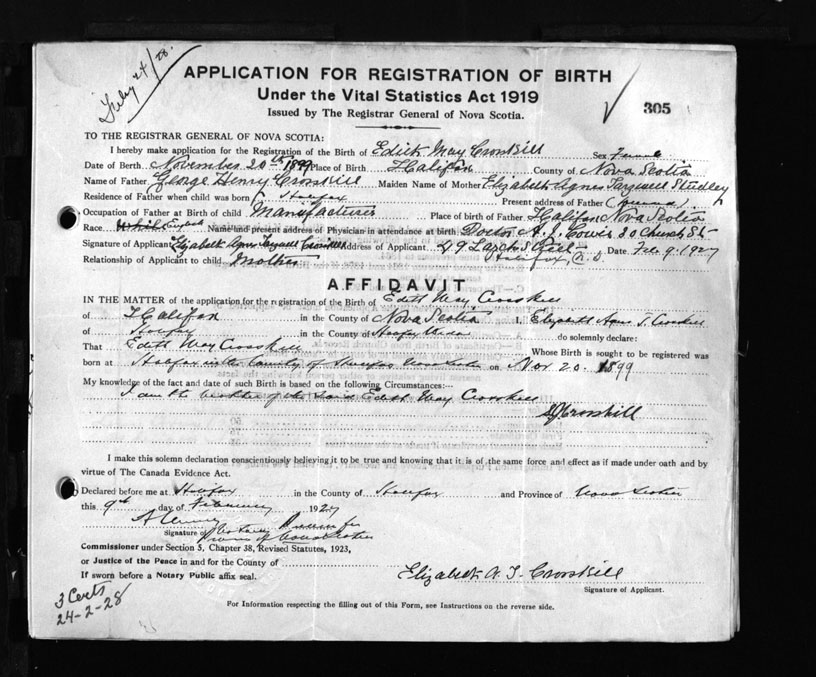 July 24/28.
APPLICATION FOR REGISTRATION OF BIRTH
305
Under the Vital Statistics Act 1919
Issued by The Registrar General of Nova Scotia.
TO THE REGISTRAR GENERAL OF NOVA SCOTIA:
I hereby make application for the Registration of the Birth of Edith May Crosskill Sex Female
Date of Birth November 20th 1899 Place of Birth Halifax County of Nova Scotia
Name of Father George Henry Crosskill Maiden Name of Mother Elizabeth Agnes Studley
Residence of Father when child was born Halifax Present address of Father
Occupation of Father at Birth of child Manufacturer Place of birth of Father Halifax Nova Scotia
Race English Name and present address of Physician in attendance at birth Doctor A. J. Cowie 20 Church St
Signature of Applicant Elizabeth Agnes Crosskill Address of Applicant 49 Larch Street Halifax, N.S. Date Feb 9. 1927
Relationship of Applicant to child Mother
AFFIDAVIT
IN THE MATTER of the application for the registration of the Birth of Edith May Crosskill
of Halifax in the County of Nova Scotia I, Elizabeth Agnes T. Crosskill
of Halifax in the County of Halifax do solemnly declare:
That Edith May Crosskill Whose Birth is sought to be registered was
born at Halifax in the County of Halifax Nova Scotia on Nov 20. 1899
My knowledge of the fact and date of such Birth is based on the following Circumstances:—
I am the mother of the said Edith May Crosskill
Crosskill
I make this solemn declaration conscientiously believing it to be true and knowing that it is of the same force and effect as if made under oath and by
virtue of The Canada Evidence Act.
Declared before me at Halifax in the County of Halifax and Province of Nova Scotia
this 9th day of February 1927
Signature of
Province of Nova Scotia
Commissioner under Section 5, Chapter 38, Revised Statutes, 1923,
or Justice of the Peace in and for the County of
If sworn before a Notary Public affix seal.
Elizabeth A. T. Crosskill
Signature of Applicant.
3 Certs
24-2-28
For Information respecting the filling out of this Form, see Instructions on the reverse side.